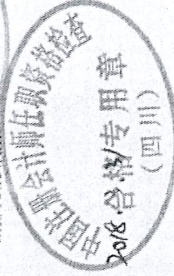 中国注册会计师任职资格检查
2018.合格专用章
(四川)